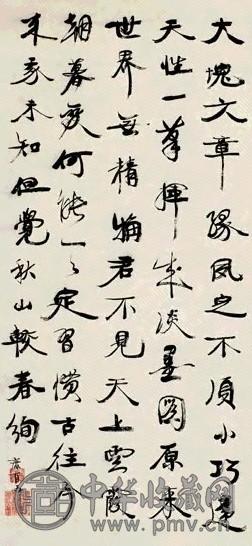 大塊文章風之不須小巧是
天性一筆揮成淡墨圖原來
世界無精君不見天上雲霞
朝暮變何能一々定習慣古往今
來我未知但覺秋山較春絢
中华收藏网
www.pmv.cn